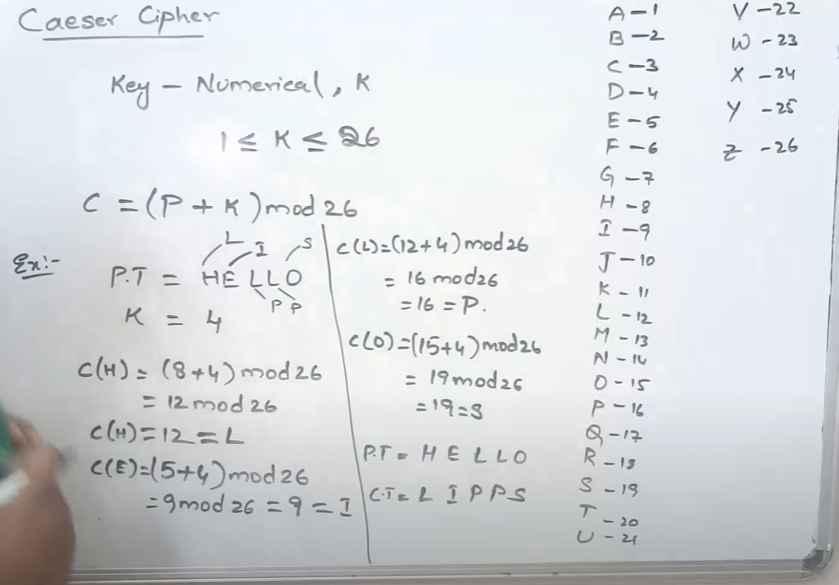 Caeser Cipher
Key - Numerical, K
1 ≤ K ≤ 26
C = (P + K) mod 26
Ex:-
L I S
P.T = HELLO
P P
K = 4
C(H) = (8+4) mod 26
= 12 mod 26
C(H) = 12 = L
C(E) = (5+4) mod 26
= 9 mod 26 = 9 = I
C(L) = (12+4) mod 26
= 16 mod 26
= 16 = P.
C(O) = (15+4) mod 26
= 19 mod 26
= 19 = S
P.T = H E L L O
C.T = L I P P S
A - 1
B - 2
C - 3
D - 4
E - 5
F - 6
G - 7
H - 8
I - 9
J - 10
K - 11
L - 12
M - 13
N - 14
O - 15
P - 16
Q - 17
R - 18
S - 19
T - 20
U - 21
V - 22
W - 23
X - 24
Y - 25
Z - 26